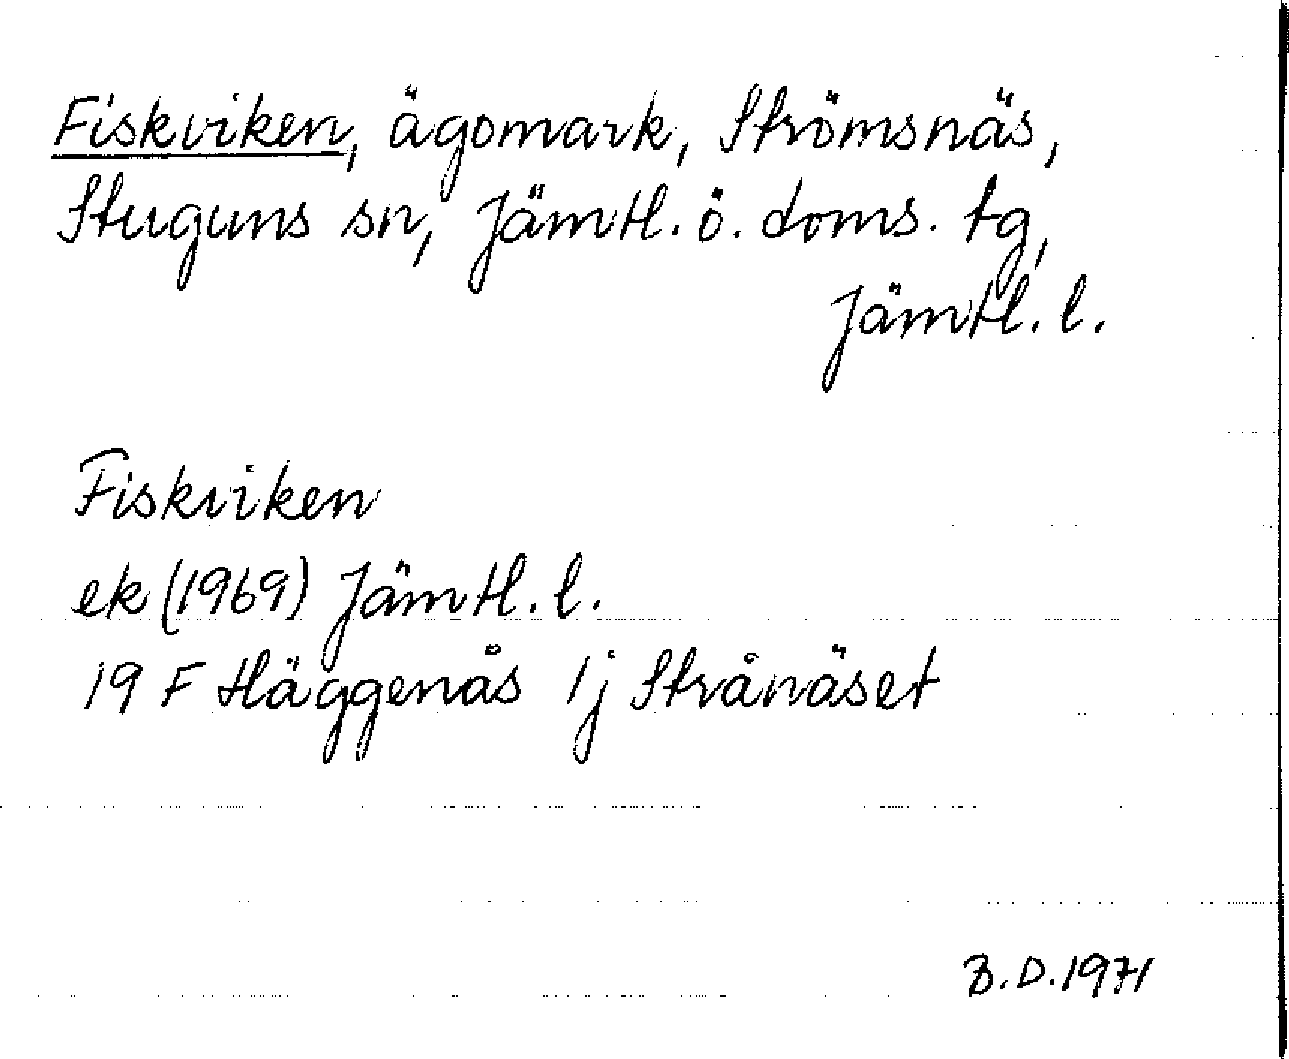 Fiskviken, ägomark, Strömsnäs,
Stuguns sn, Jämtl. ö. doms. tg,
Jämtl. l.
Fiskviken
ek (1969) Jämtl. l.
19 F Häggenås 1j Strånäset
B.D. 1971